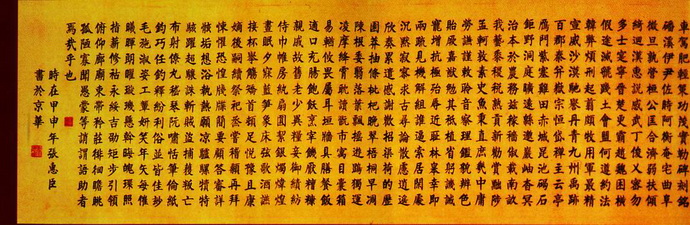 車駕肥輕策功茂實勒碑刻銘
磻溪伊尹佐時阿衡奄宅曲阜
微旦孰營桓公匡合濟弱扶傾
綺迴漢惠說感武丁俊乂密勿
多士寔寧晉楚更霸趙魏困橫
假途滅虢踐土會盟何遵約法
韓弊煩刑起翦頗牧用軍最精
宣威沙漠馳譽丹青九州禹跡
百郡秦并嶽宗恆岱禪主云亭
雁門紫塞雞田赤城昆池碣石
鉅野洞庭曠遠綿邈巖岫杳冥
治本於農務茲稼穡俶載南畝
我藝黍稷稅熟貢新勸賞黜陟
孟軻敦素史魚秉直庶幾中庸
勞謙謹敕聆音察理鑑貌辨色
貽厥嘉猷勉其祗植省躬譏誡
寵增抗極殆辱近恥林皋幸即
兩疏見機解組誰逼索居閒處
沉默寂寥求古尋論散慮逍遙
欣奏累遣慼謝歡招渠荷的歷
園莽抽條枇杷晚翠梧桐早凋
陳根委翳落葉飄颻遊鵾獨運
凌摩絳霄耽讀翫市寓目囊箱
易輶攸畏屬耳垣牆具膳餐飯
適口充腸飽飫烹宰饑厭糟糠
親戚故舊老少異糧妾御績紡
侍巾帷房紈扇圓潔銀燭煒煌
晝眠夕寐藍筍象床弦歌酒讌
接杯舉觴矯手頓足悅豫且康
嫡後嗣續祭祀烝嘗稽顙再拜
悚懼恐惶牋牒簡要顧答審詳
骸垢想浴執熱願涼驢騾犢特
駭躍超驤誅斬賊盜捕獲叛亡
布射僚丸嵇琴阮嘯恬筆倫紙
鈞巧任釣釋紛利俗並皆佳妙
毛施淑姿工顰妍笑年矢每催
曦暉朗曜璇璣懸斡晦魄環照
指薪修祜永綏吉劭矩步引領
俯仰廊廟束帶矜莊徘徊瞻眺
孤陋寡聞愚蒙等誚謂語助者
焉哉乎也
時在甲申年張惠臣
書於京華